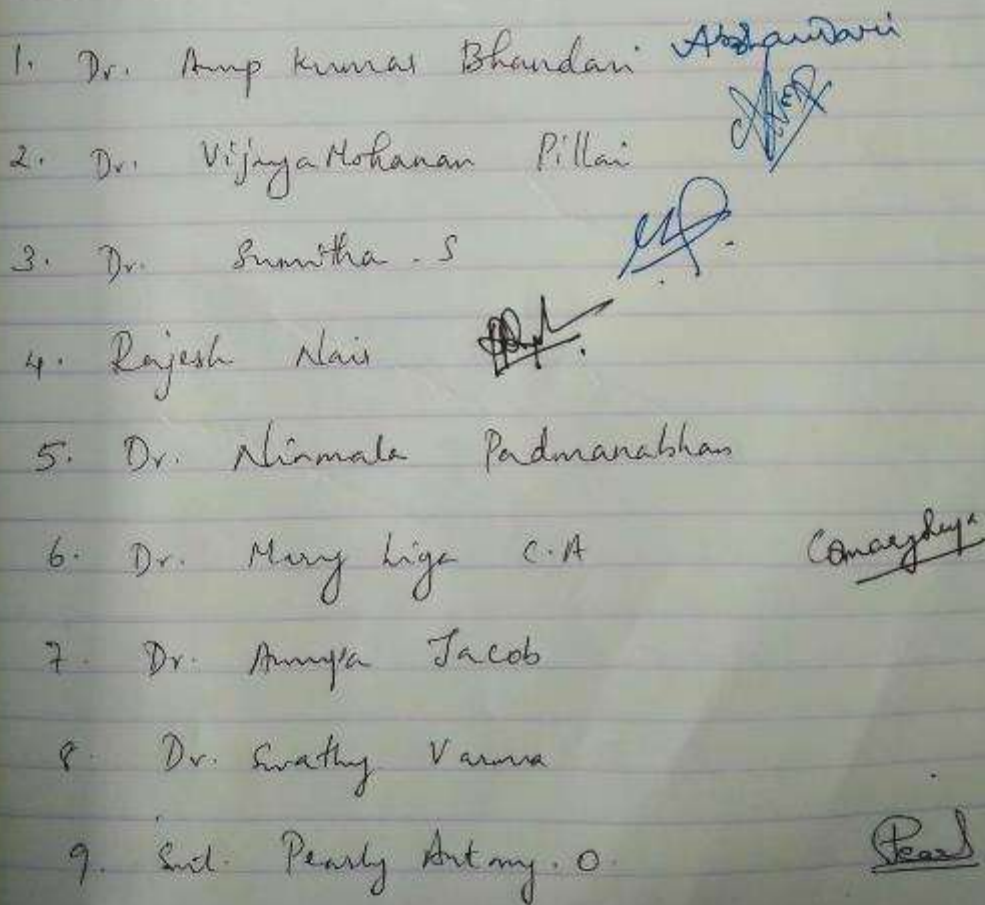 1. Dr. Anup Kumar Bhandari ABhandari
2. Dr. Vijaya Mohanan Pillai
3. Dr. Sumitha . S
4. Rajesh Nair
5. Dr. Nirmala Padmanabhan
6. Dr. Mary Liya C.A
7. Dr. Anuja Jacob
8. Dr. Swathy Varma
9. Smt. Pearly Antony . O. Pearl